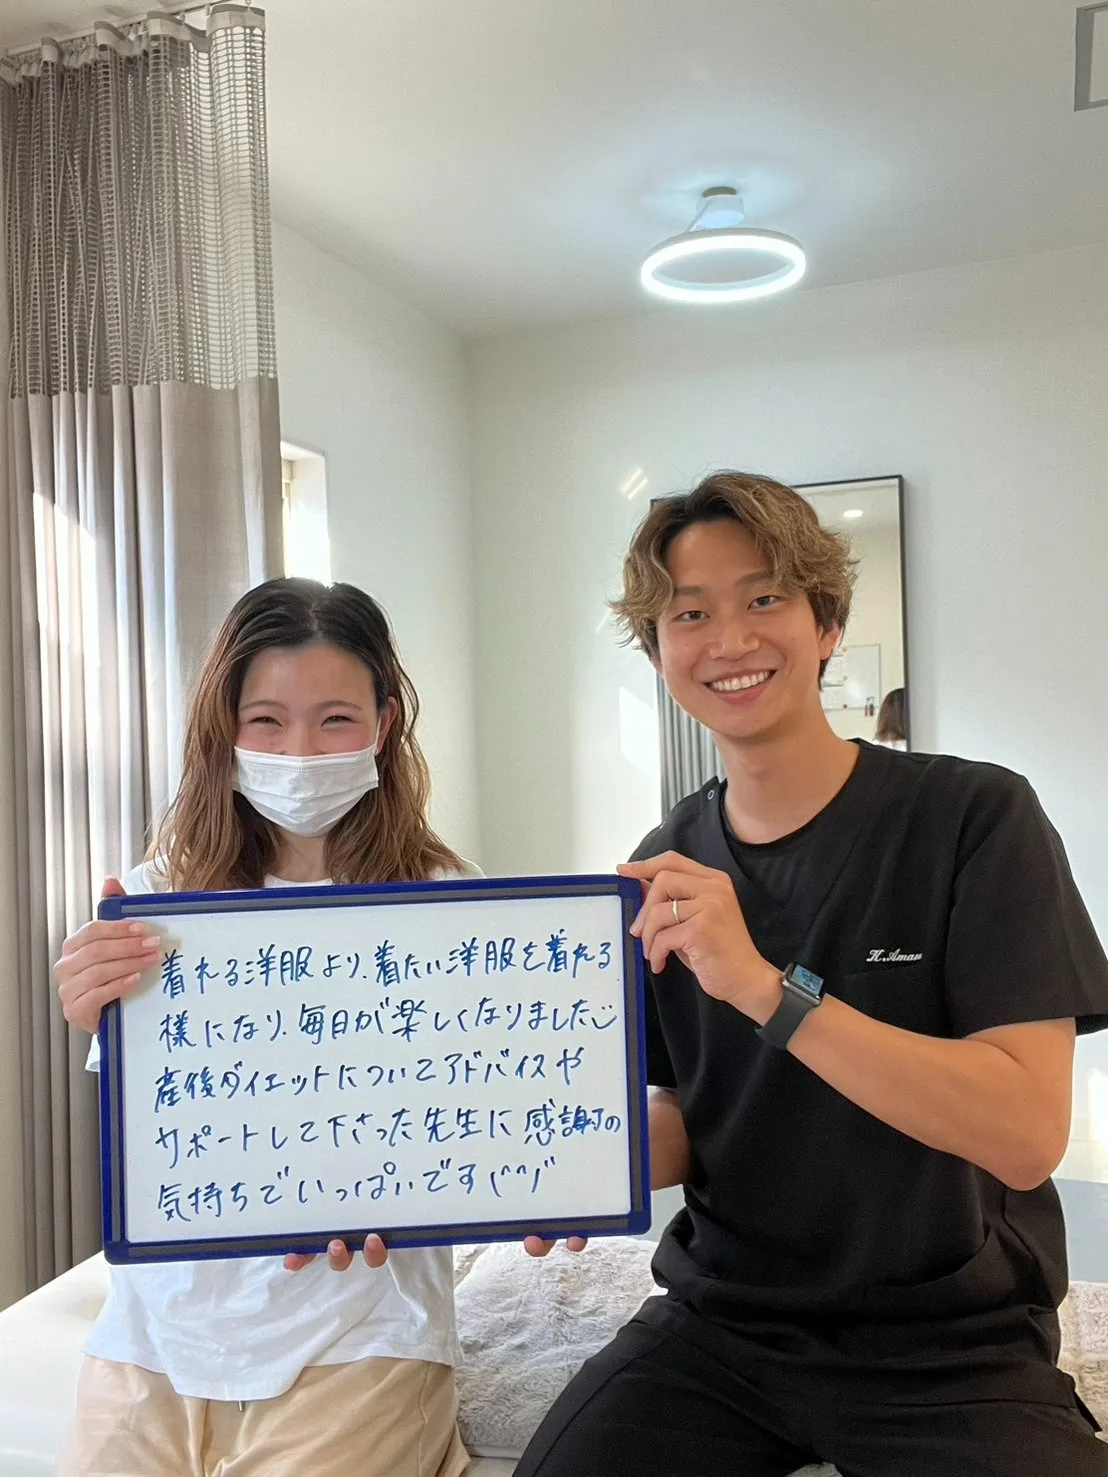 着れる洋服より、着たい洋服を着れる
様になり、毎日が楽しくなりました
産後ダイエットについてアドバイスや
サポートして下さった先生に感謝の
気持ちでいっぱいです(^^)/
H.Amano